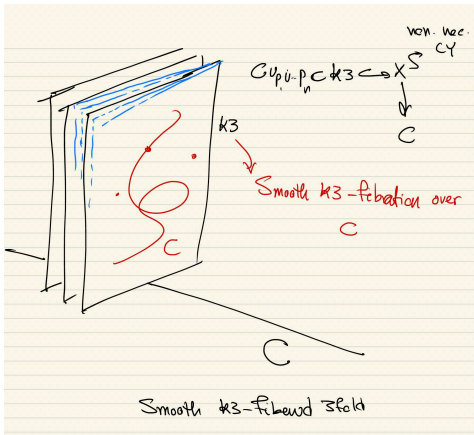 non. nec.
CY
C∪p₁∪..p_n ⊂ K3 ↪ X⁵
↓
C
K3
Smooth K3-fibration over
C
C
C
Smooth K3-Fibered 3fold